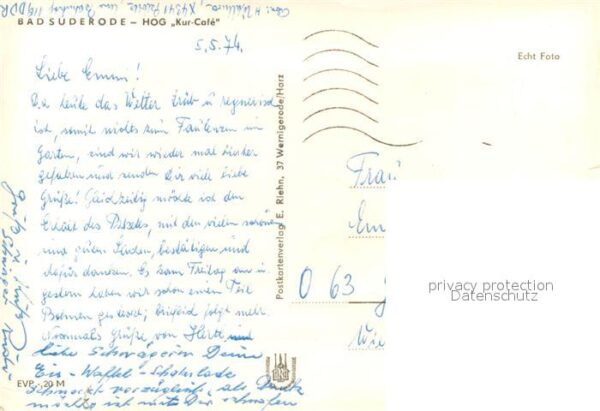 BAD SUDERODE – HOG „Kur-Café"
5.5.74.
Liebe Emmi!
Da heute das Wetter trüb u regnerisch
ist, somit nichts zum Faulenzen im
Garten, sind wir wieder mal hierher
gefahren und senden Dir viele liebe
Grüße! Gleichzeitig möchte ich den
Erhalt des Paketes, mit den vielen schönen
und guten Sachen, bestätigen und
dafür danken. Es kam Freitag an u
gestern haben wir schon einen Teil
Bohnen gekocht; Brief folgt mehr.
Nochmals Grüße von Herta und
Liebe Schwägerin Deine
Eis-Waffel-Schokolade
schmeckt vorzüglich, als Dank
möchte ich mit Dir
EVP -,20 M
Postkartenverlag E. Riehn, 37 Wernigerode/Harz
Echt Foto
Frau
Em
O 63
Wie
privacy protection
Datenschutz